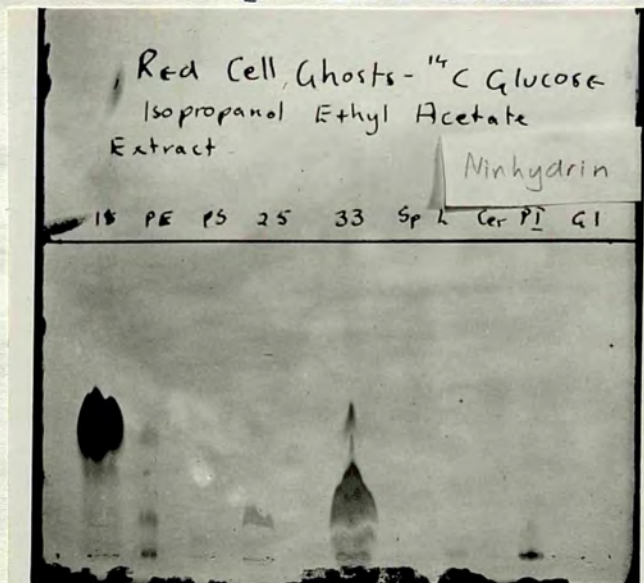 Red Cell Ghosts - ¹⁴C Glucose
Isopropanol Ethyl Acetate
Extract
Ninhydrin
18 PE PS 25 33 Sp L Cer PI Gl